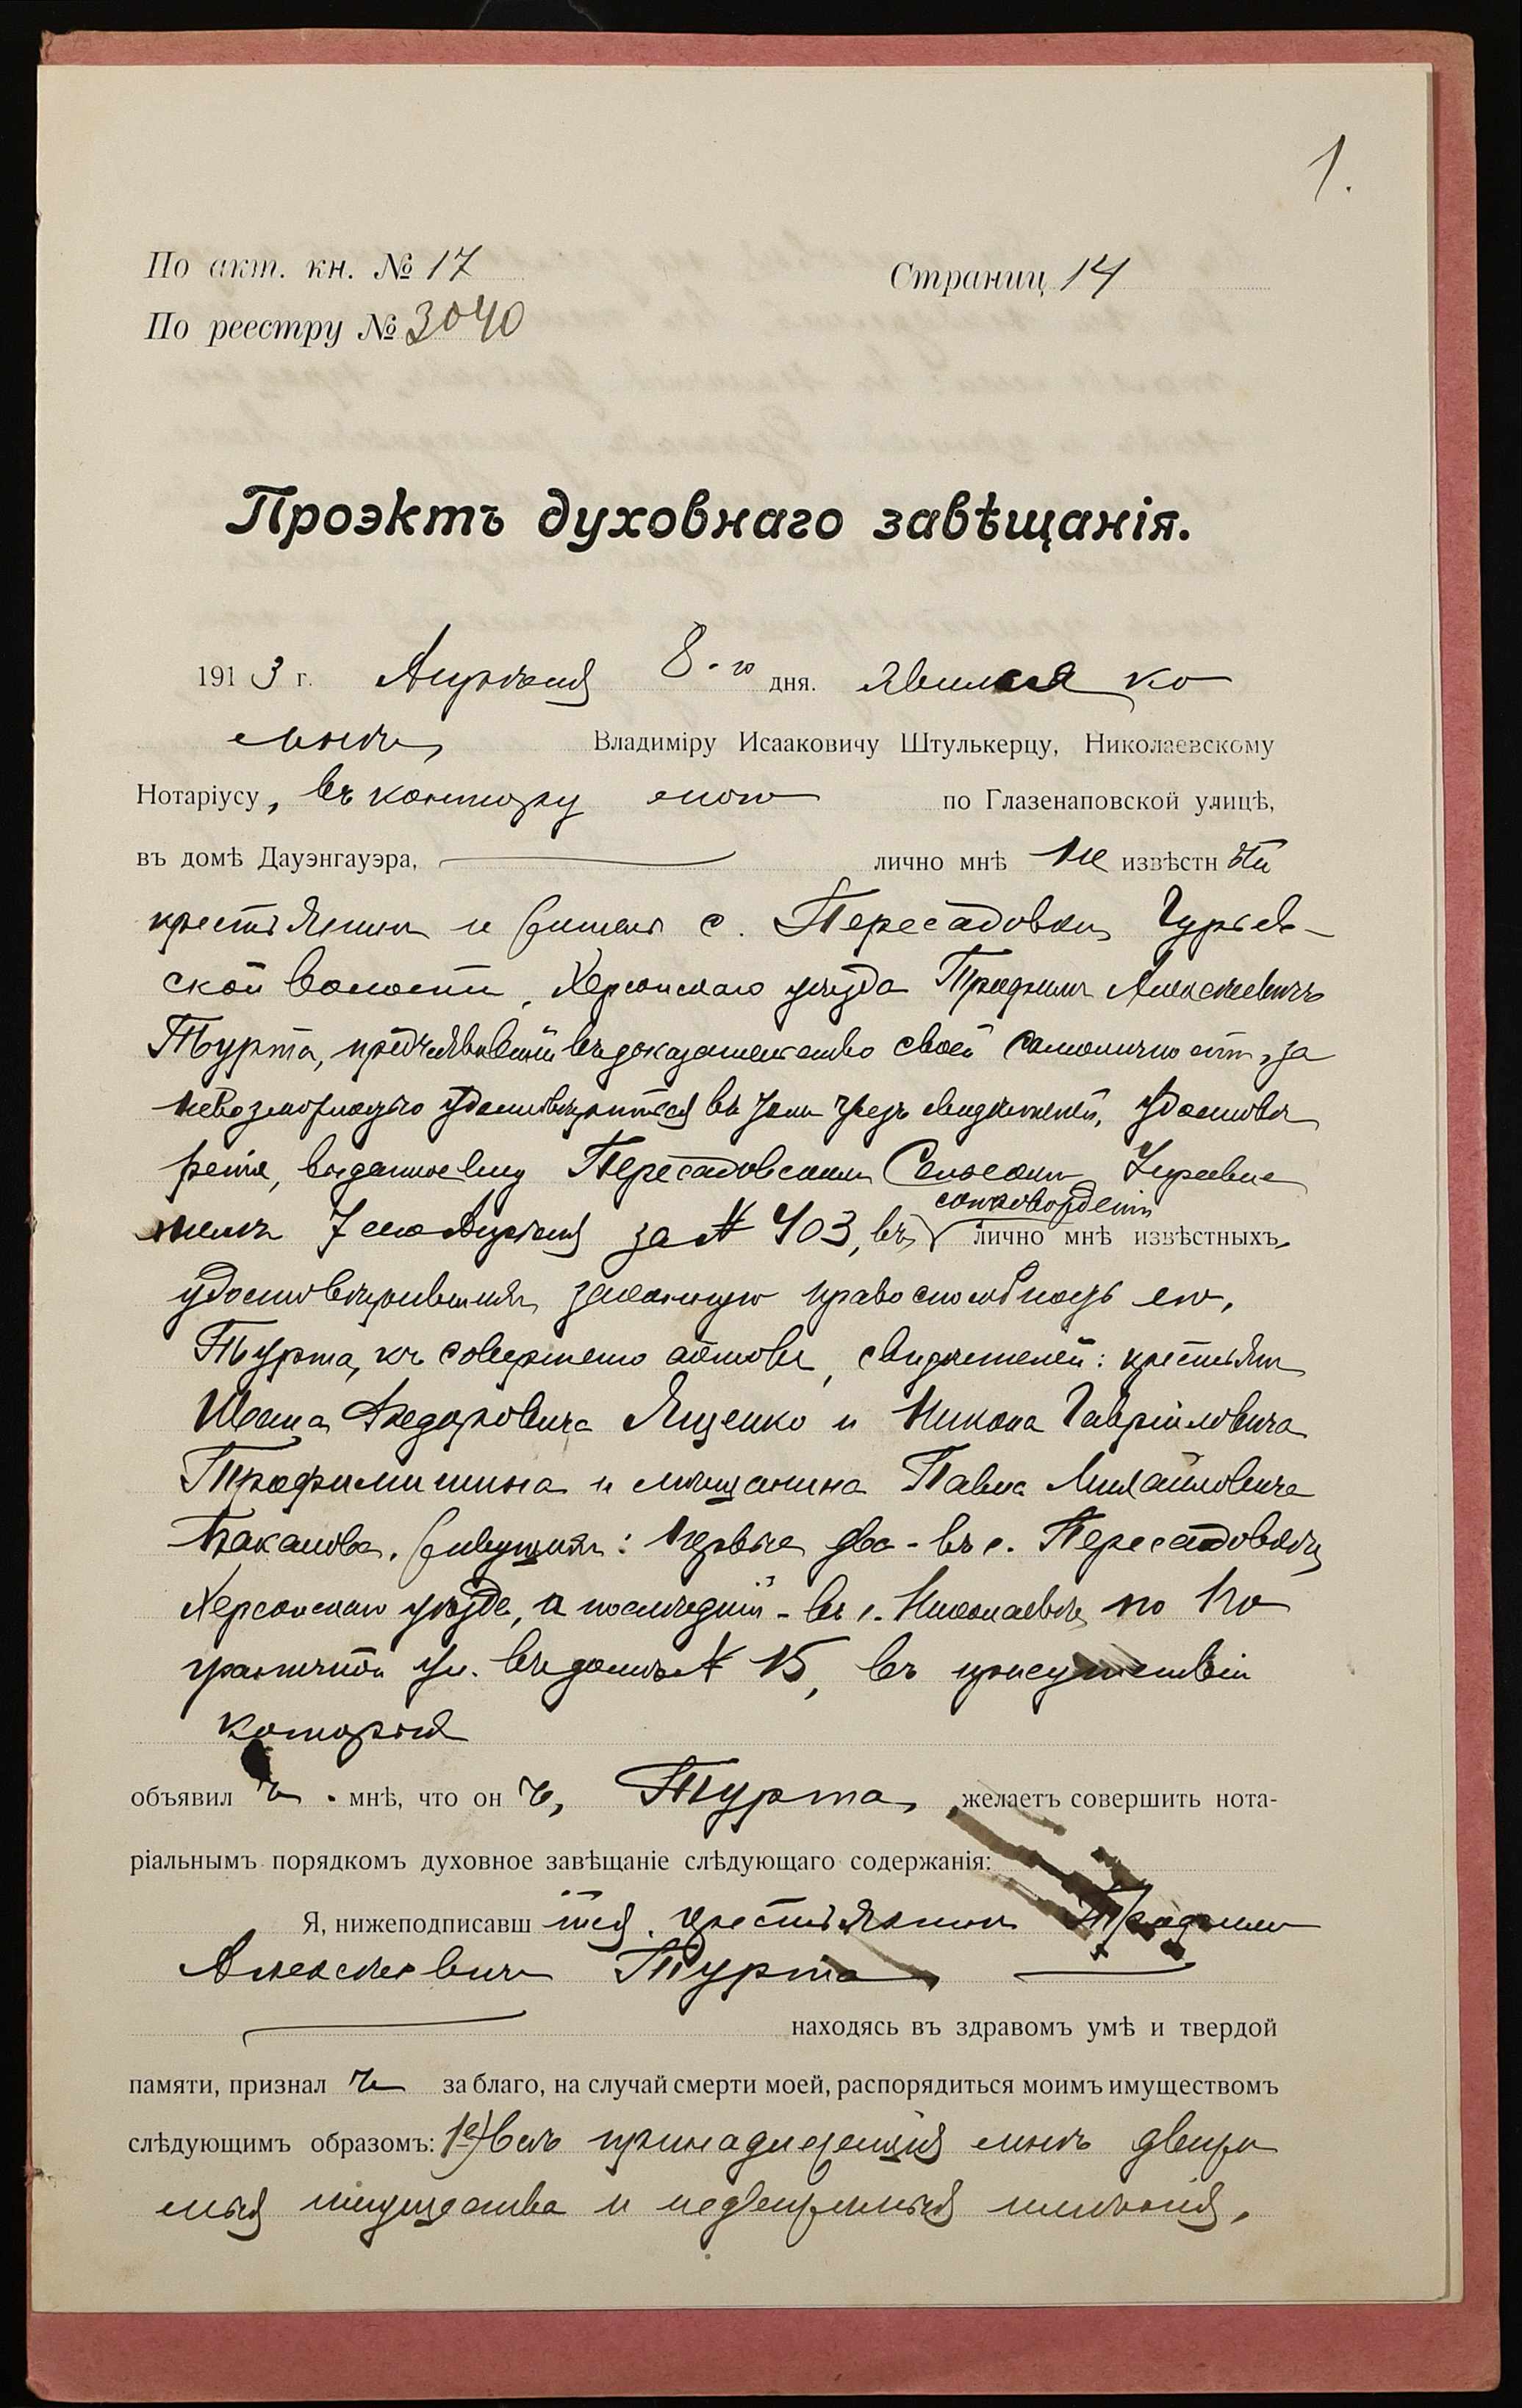 1.
По акт. кн. № 17 Страниц 14
По реестру № 3040
Проэктъ духовнаго завѣщанія.
1913 г. Апрѣля 8-го дня. явился ко
мнѣ, Владиміру Исааковичу Штулькерцу, Николаевскому
Нотаріусу, въ контору мою по Глазенаповской улицѣ,
въ домѣ Дауэнгауэра, лично мнѣ не извѣстный
крестьянинъ и житель с. Пересадовки, Гурьев-
ской волости, Херсонскаго уѣзда Трофимъ Алексѣевичъ
Турта, предъявившій въ доказательство своей самоличности, за
невозможностью удостовѣриться въ ней чрезъ свидѣтелей, удостовѣ
реніе, выданное ему Пересадовскимъ Сельскимъ Управле
ніемъ 7 сего Апрѣля за № 403, въ сопровожденіи лично мнѣ извѣстныхъ,
удостовѣрившихъ законную правоспособность его,
Турта, къ совершенію актовъ, свидѣтелей: крестьянъ
Ивана Федоровича Ященко и Никона Гавріиловича
Трофимишина и мѣщанина Павла Михайловича
Бакалова, живущихъ: первые два - въ с. Пересадовкѣ,
Херсонскаго уѣзда, а послѣдній - въ г. Николаевѣ, по По
граничной ул. въ домѣ № 15, въ присутствіи
которыхъ
объявилъ мнѣ, что онъ, Турта, желаетъ совершить нота-
ріальнымъ порядкомъ духовное завѣщаніе слѣдующаго содержанія:
Я, нижеподписавшійся, крестьянинъ Трофимъ
Алексѣевичъ Турта,
находясь въ здравомъ умѣ и твердой
памяти, призналъ за благо, на случай смерти моей, распорядиться моимъ имуществомъ
слѣдующимъ образомъ: 1е) Всѣ принадлежащія мнѣ движи
мыя имущества и недвижимыя имѣнія,